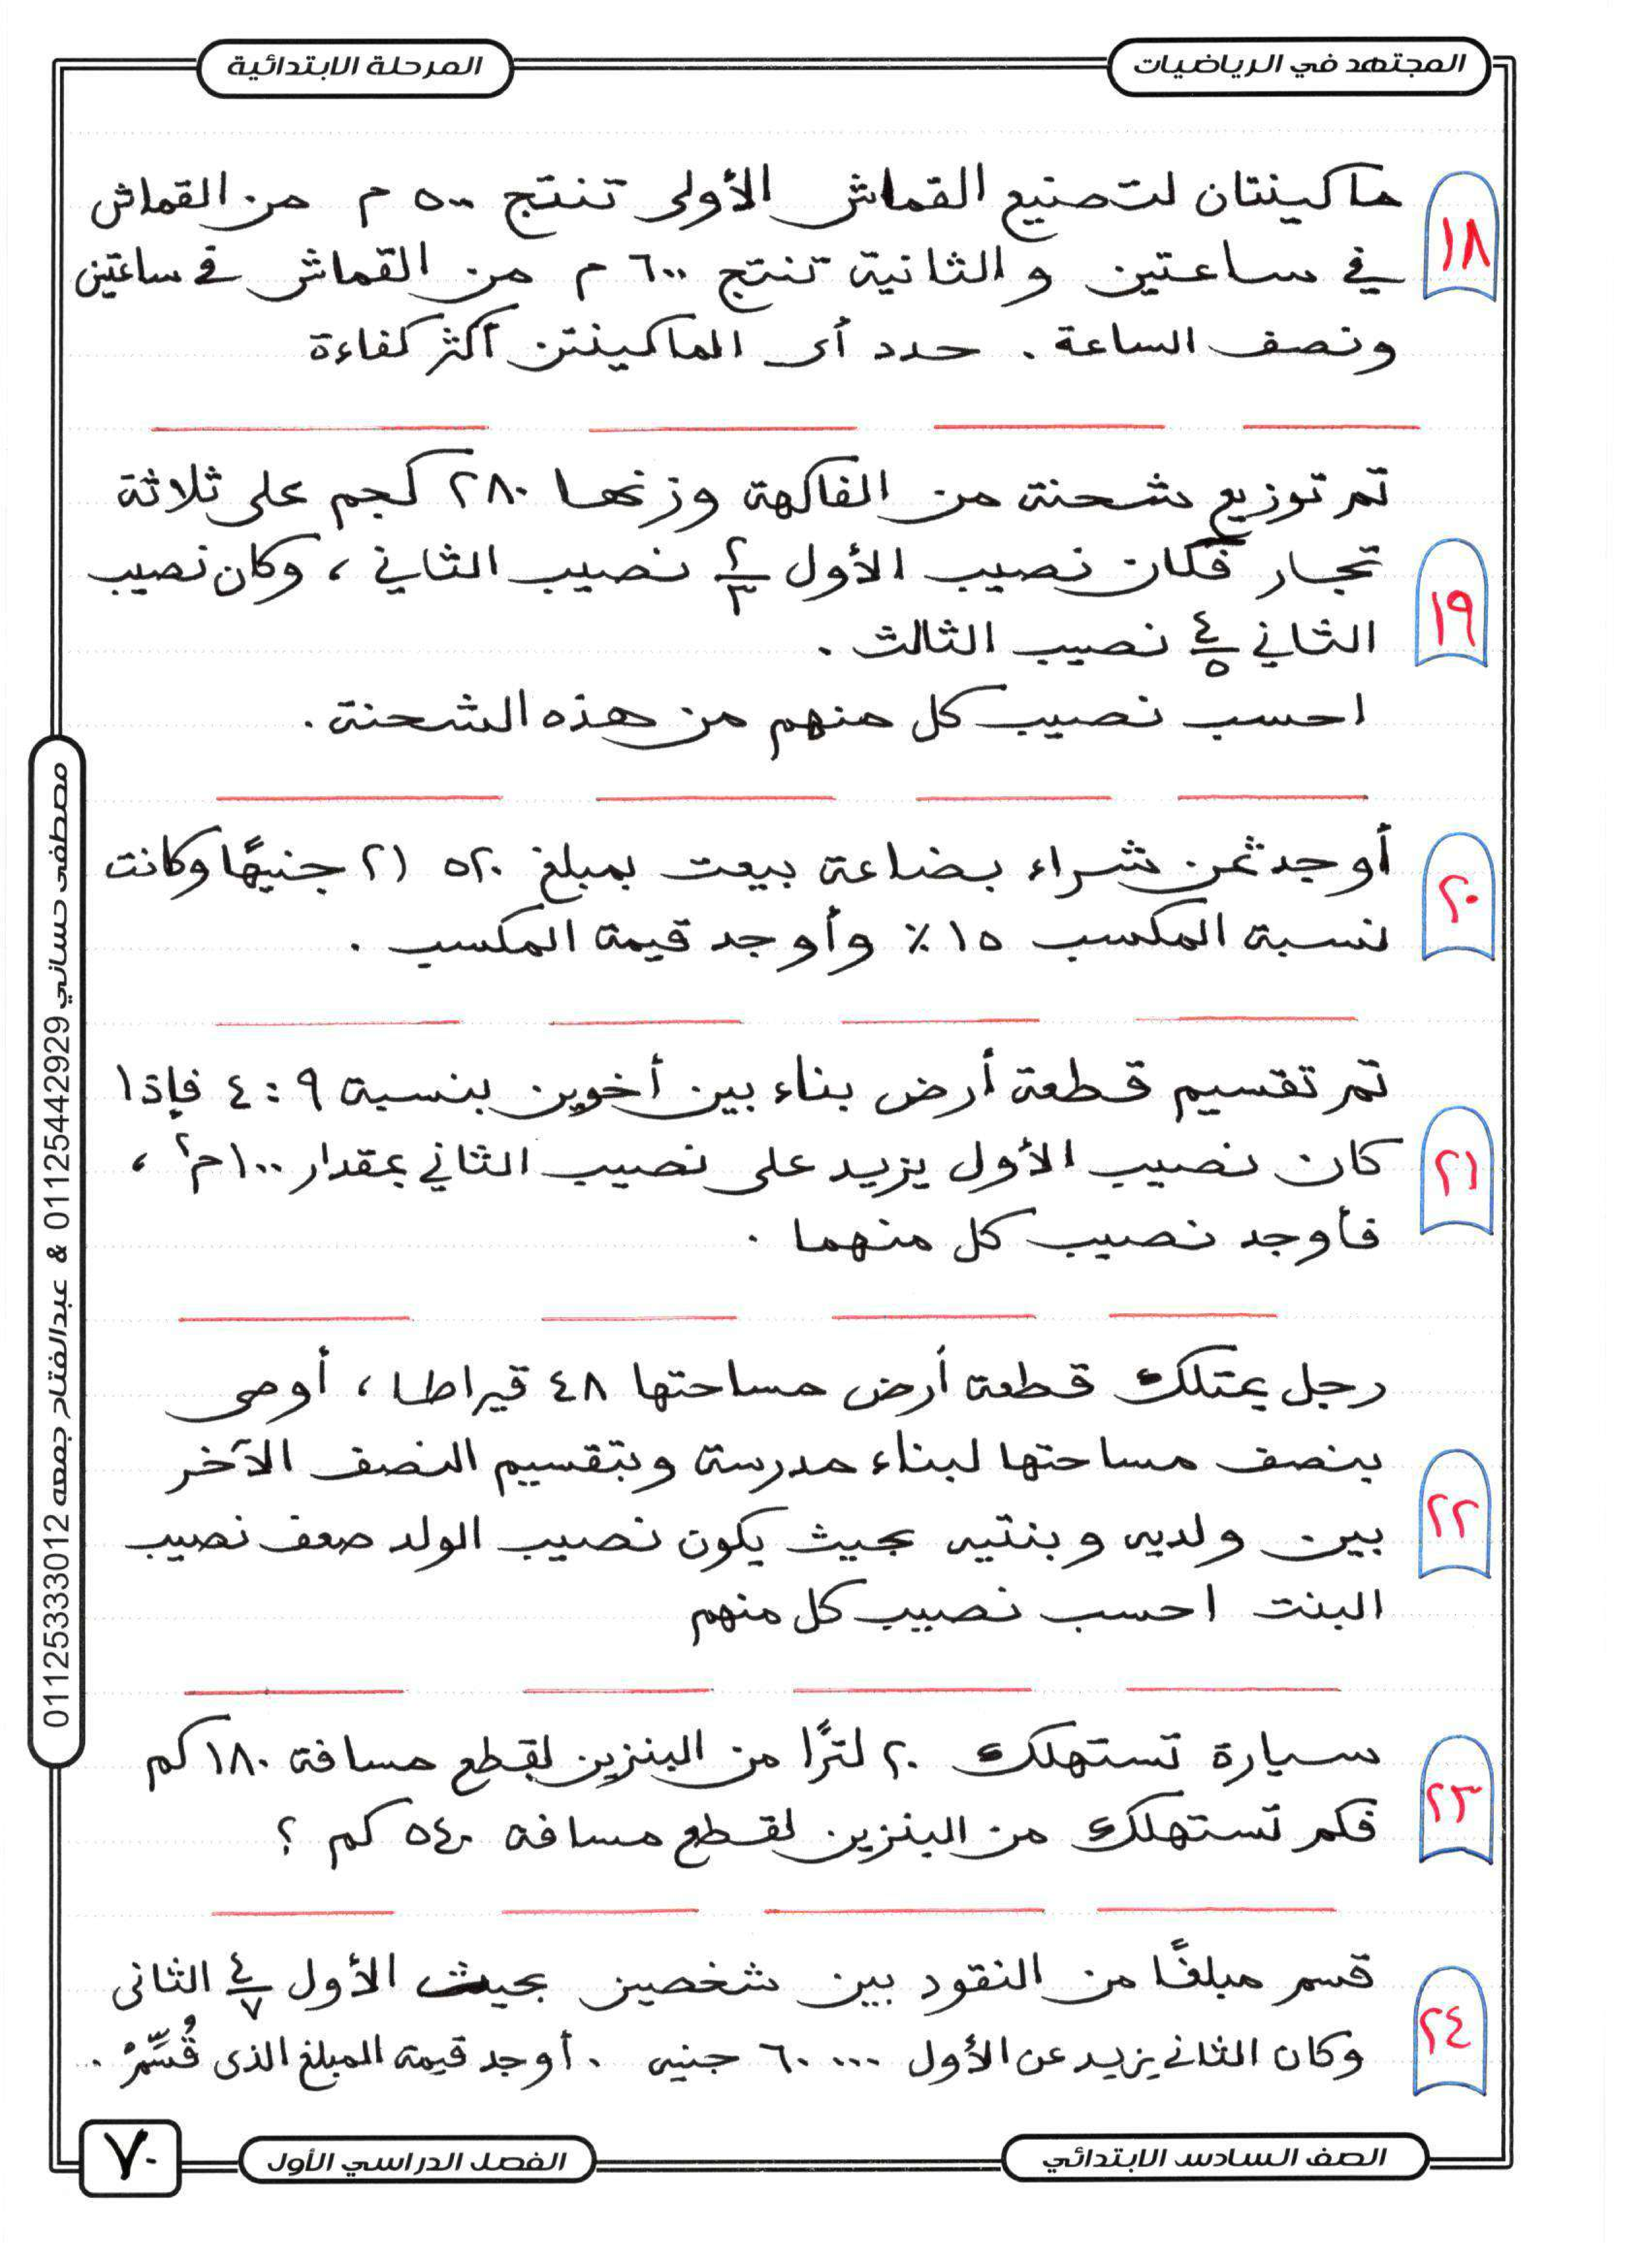 المجتهد في الرياضيات
المرحلة الابتدائية
١٨
ماكينتان لتصنيع القماش الأولى تنتج ٥٠٠ م من القماش
في ساعتين والثانية تنتج ٦٠٠ م من القماش في ساعتين
ونصف الساعة . حدد أى الماكينتن أكثر كفاءة
تم توزيع شحنة من الفاكهة وزنها ٢٨٠ كجم على ثلاثة
١٩
تجار فكان نصيب الأول ٢/٣ نصيب الثاني ، وكان نصيب
الثاني ٤/٥ نصيب الثالث .
احسب نصيب كل منهم من هذه الشحنة .
٢٠
أوجد ثمن شراء بضاعة بيعت بمبلغ ٢١٥٢٠ جنيهًا وكانت
نسبة المكسب ١٥ ٪ وأوجد قيمة المكسب .
تم تقسيم قطعة أرض بناء بين أخوين بنسبة ٩ : ٤ فإذا
٢١
كان نصيب الأول يزيد على نصيب الثاني بمقدار ١٠٠ م٢ ،
فأوجد نصيب كل منهما .
رجل يمتلك قطعة أرض مساحتها ٤٨ قيراطا ، أوصى
بنصف مساحتها لبناء مدرسة وبتقسيم النصف الآخر
٢٢
بين ولديه وبنتيه بحيث يكون نصيب الولد ضعف نصيب
البنت احسب نصيب كل منهم
٢٣
سيارة تستهلك ٢٠ لترًا من البنزين لقطع مسافة ١٨٠ كم
فكم تستهلك من البنزين لقطع مسافة ٥٤٠ كم ؟
٢٤
قسم مبلغًا من النقود بين شخصين بحيث الأول ٤/٧ الثانى
وكان الثاني يزيد عن الأول ٦٠٠٠٠ جنيه . أوجد قيمة المبلغ الذى قُسِّمْ .
الصف السادس الابتدائي
الفصل الدراسي الأول
٧٠
مصطفى حساني 01125442929 & عبدالفتاح جمعه 01125333012